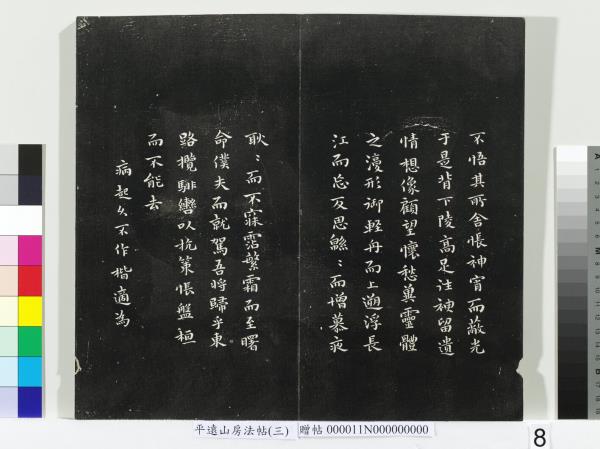 不悟其所舍悵神宵而蔽光
于是背下陵高足往神留遺
情想像顧望懷愁冀靈體
之復形御輕舟而上遡浮長
江而忘反思緜〻而增慕夜
耿〻而不寐霑繁霜而至曙
命僕夫而就駕吾將歸乎東
路攬騑轡以抗策悵盤桓
而不能去
病起久不作楷適為
平遠山房法帖(三)
贈帖 000011N000000000
8